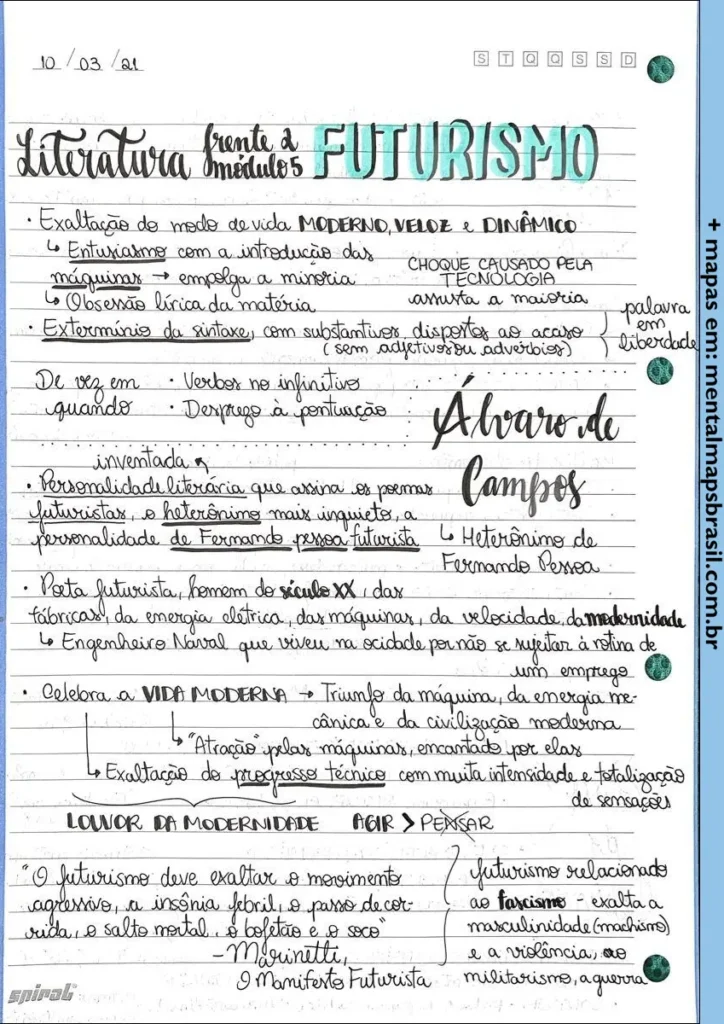 10/03/21
S T Q Q S S D
Literatura frente 2 módulo 5 FUTURISMO
· Exaltação do modo de vida MODERNO, VELOZ e DINÂMICO
↳ Entusiasmo com a introdução das
máquinas → empolga a minoria
CHOQUE CAUSADO PELA
TECNOLOGIA
assusta a maioria
↳ Obsessão lírica da matéria
· Extermínio da sintaxe, com substantivos dispostos ao acaso
(sem adjetivos ou advérbios)
palavra
em
liberdade
De vez em
quando
· Verbos no infinitivo
· Desprezo à pontuação
Álvaro de
Campos
↳ Heterônimo de
Fernando Pessoa
inventada
· Personalidade literária que assina os poemas
futuristas, o heterônimo mais inquieto, a
personalidade de Fernando pessoa futurista
· Poeta futurista, homem do século XX, das
fábricas, da energia elétrica, das máquinas, da velocidade, da modernidade
↳ Engenheiro Naval que viveu na ocidade por não se sujeitar à rotina de
um emprego
· Celebra a VIDA MODERNA → Triunfo da máquina, da energia me-
cânica e da civilização moderna
↳ "Atração" pelas máquinas, encantado por elas
↳ Exaltação do progresso técnico com muita intensidade e totalização
de sensações
LOUVOR DA MODERNIDADE AGIR > PENSAR
"O futurismo deve exaltar o movimento
agressivo, a insônia febril, o passo de cor-
rida, o salto mortal, o bofetão e o soco"
- Marinetti,
O Manifesto Futurista
futurismo relacionado
ao fascismo - exalta a
masculinidade (machismo)
e a violência, ao
militarismo, a guerra
spiral
+ mapas em: mentalmapsbrasil.com.br